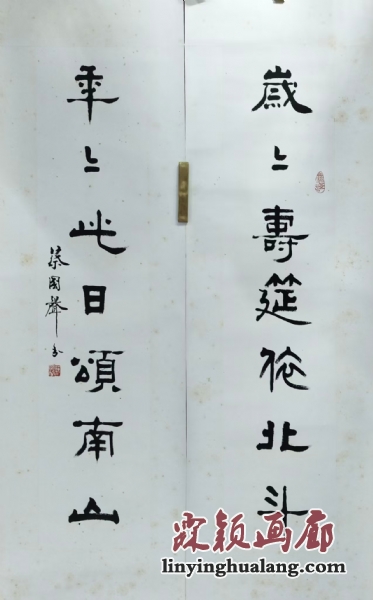 歲〻壽筵依北斗
年〻此日頌南山
蔡國聲书
霖颖画廊
linyinghualang.com